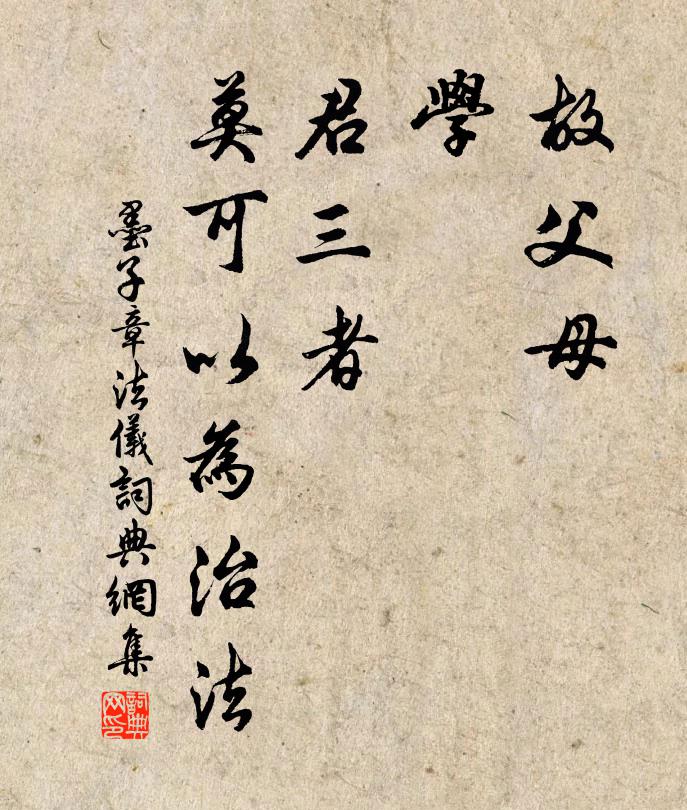 故父母
學
君三者
莫可以為治法
墨子章法儀詞典網集
詞典网印